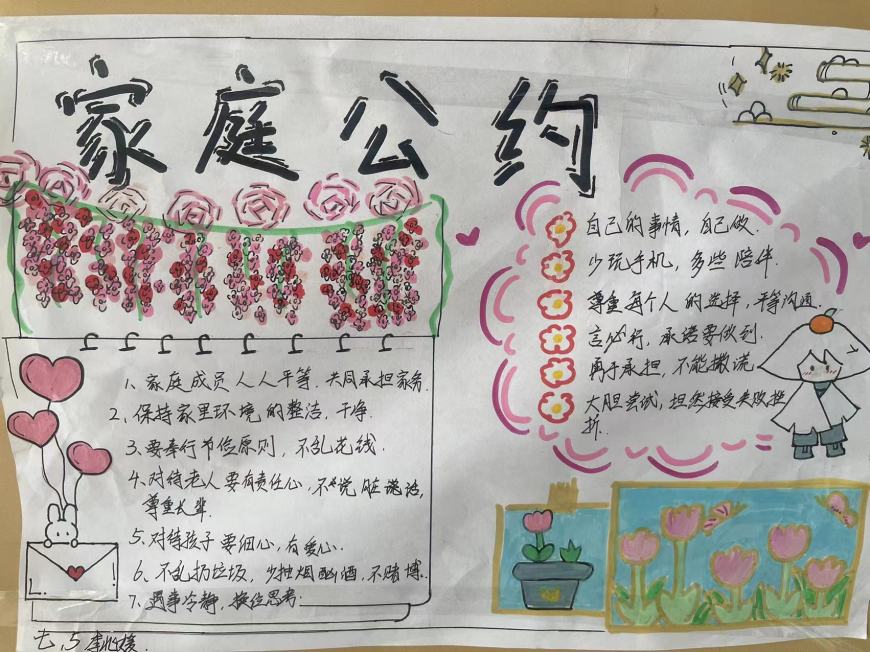 家庭公约
自己的事情，自己做.
少玩手机，多些陪伴.
尊重每个人的选择，平等沟通.
言必行，承诺要做到.
勇于承担，不能撒谎
大胆尝试，坦然接受失败挫
折.
1、家庭成员人人平等.共同承担家务.
2、保持家里环境的整洁，干净.
3、要奉行节俭原则，不乱花钱.
4、对待老人要有责任心，不说脏话,
尊重长辈.
5、对待孩子要细心，有爱心.
6、不乱扔垃圾，少抽烟酗酒，不赌博.
7、遇事冷静，换位思考.
七.5